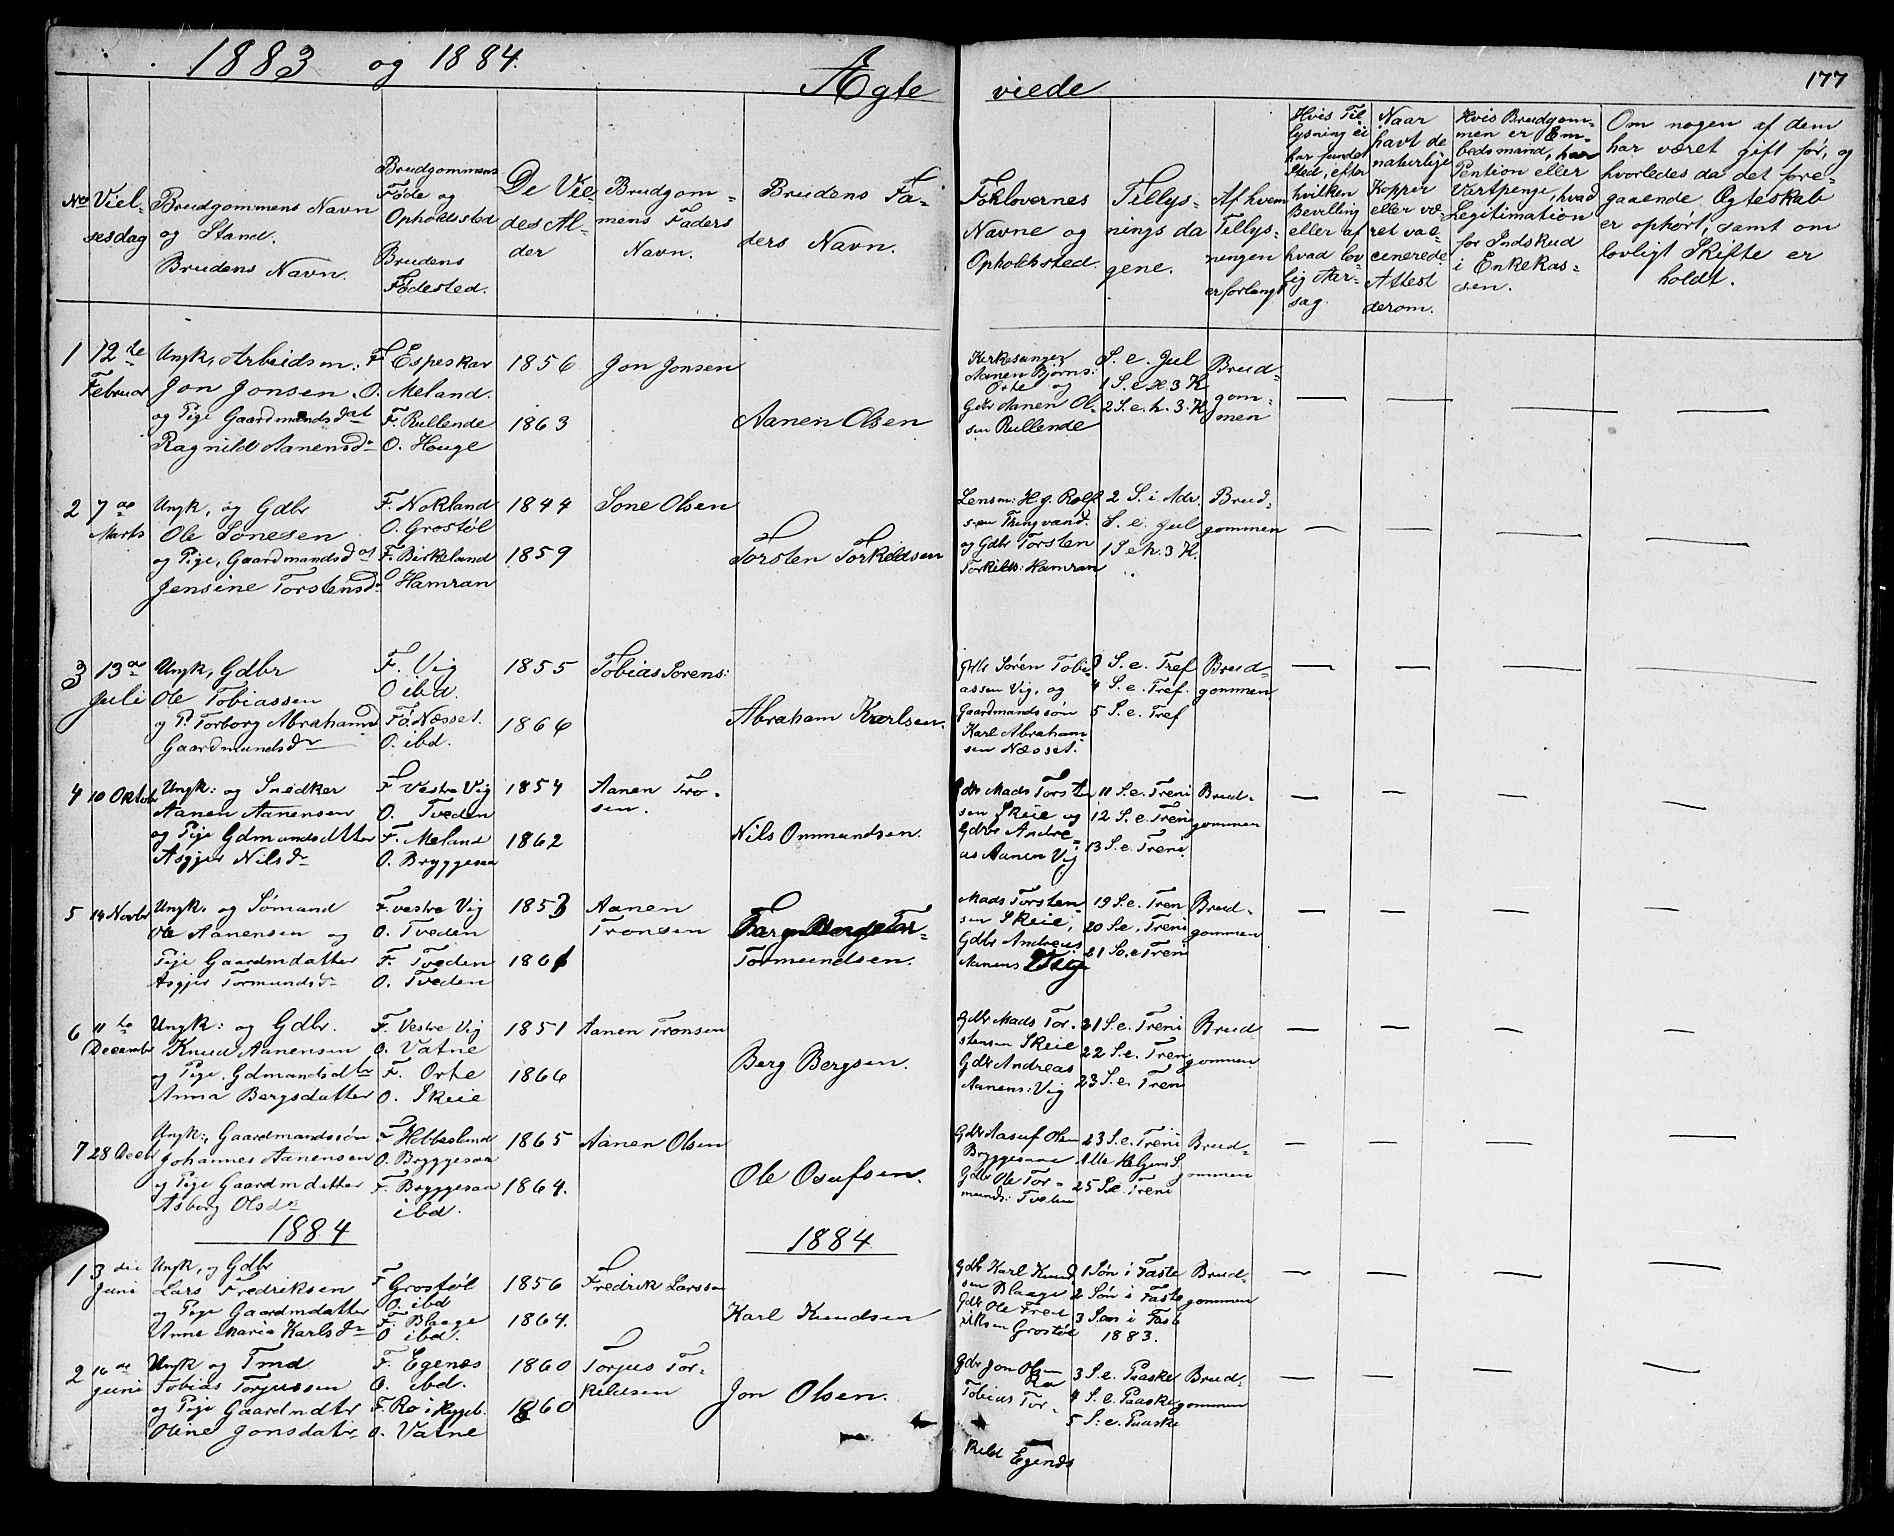 1883 og 1884.
Ægte viede
177
No
Viel-
sesdag
Brudgommens Navn
og Stand.
Brudens Navn.
Brudgommens
Føde og
Opholdssted
Brudens
Fødested.
De Vie-
des Al-
der
Brudgom-
mens Faders
Navn.
Brudens Fa-
ders Navn.
Foklovernes
Navne og
Opholdssted.
Tillys-
nings da
gene.
Af hvem
Tillys-
ningen
er forlangt
Hvis Til
lysning ei
har fundet
Sted, efter
hvilken
Bevilling
eller af
hvad lov-
lig Aar-
sag.
Naar
havt de
naturlige
Kopper
eller væ-
ret vac-
cinerede
Attest
derom.
Hvis Brudgom-
men er Em-
bedsmand, har
Pention eller
Vartpenge, hvad
Legitimation
for Indskud
i Enkekas-
sen.
Om nogen af dem
har været gift før, og
hvorledes da det fore-
gaaende Ægteskab
er ophørt, samt om
lovligt Skifte er
holdt.
1
12te
Februar
Ungk, Arbeidsm.
Jon Jonsen.
og Pige Gaardmandsdat
Ragnild Aanensdr
F. Espeskar
O. Meland.
F. Rullende
O. Houge
1856
1863
Jon Jonsen
Aanen Olsen
Kirkesanger
Aanen Bjørns:
Orte og
Gdbr Aanen Ol-
sen Rullende
S. e. Jul
1 S. e. H. 3 K
2 S. e. h. 3. K.
Brud-
gom-
men
2
7de
Marts
Ungk, og Gdbr
Ole Sonesen
og Pige, Gaardmandsdat
Jensine Torstensdr
F. Nokland
O. Grostøl
F. Birkeland
O Hamran
1844
1859
Sone Olsen
Torsten Torkildsen
Lensm: H. g. Rolf
sen Tningvand.
og Gdbr Torsten
Torkilds: Hamran
2 S. i Adv.
S. e. Jul
1 S e h. 3 K.
Brud-
gommen
3
13de
Juli
Ungk, Gdbr
Ole Tobiassen
og P. Torborg Abrahamsd
Gaardmandsdr
F. Vig
O ibd.
Fø. Næsset.
O. ibd.
1855
1866
Tobias Sørens:
Abraham Karlsen.
Gdbr Søren Tobi-
assen Vig, og
Gaardmandssøn
Karl Abraham
sen Næsset.
3 S. e. Tref
4 S. e. Tref.
5 S. e. Tref
Brud-
gommen
4
10 Oktobr
Ungk: og Snedker
Aanen Aanensen
og Pige Gdmandsdtter
Asgjer Nilsdr
F Vestre Vig
O. Tveden
F. Meland
O. Bryggesaa
1854
1862
Aanen Tro-
sen.
Nils Ommundsen.
Gdbr Mads Torsten
sen Skeie og
Gdbr Andre-
as Aanen Vig
11 S. e. Treni
12 S. e. Treni
13 S. e. Treni.
Brud-
gommen
5
14 Novbr
Ungk. og Sømand
Ole Aanensen og
Pige Gaardmdatter
Asgjer Tormundsdr
F. vestre Vig
O. Tveden
F. Tveden
O. Tveden
1853
1861
Aanen
Tronsen
Tormundsen.
Mads Torsten-
sen Skeie,
Gdbr Andreas
Aanens Vig
19 S. e. Tren
20 S. e. Treni
21 So. e Treni
Brud-
gommen
6
11te
Decembr
Ungk: og Gdbr.
Knud Aanensen
og Pige. Gdmandsdtr
Anna Bergsdatter
F. Vestre Vig
O. Vatne
F. Orte
O. Skeie
1851
1866
Aanen Tronsen
Berg Bergsen.
Gdbr Mads Tor-
stensen Skeie
Gdbr Andreas
Aanens: Vig
21 S. e. Treni
22 S. e. Tren
23 S. e. Treni
Brud-
gommen
7
28 Decbr
Ungk:, Gaardmandssøn
Johannes Aanensen
og Pige Gaardmdatter
Asborg Olsdr
F Hebbesland
O. Bryggesaa
F. Bryggesaa
ibd.
1865
1864.
Aanen Olsen
Ole Osufsen.
Gdbr Aasuf Olsen
Bryggesaae
Gdbr Ole Tor-
munds: Tveden
23 S. e. Treni
Alle Helgens S.
25 S. e. Treni
Brud-
gommen
1884
1884
1
3die
Juni
Ungk, og Gdbr
Lars Fredriksen
og Pige Gaardmdatter
Anne Maria Karlsdr
F Grostøl
O. ibd
F. Blaage
O ibd.
1856
1864.
Fredrik Larssen
Karl Knudsen
Gdbr Karl Knud
sen Blaage
Gdbr Ole Fred
riksen Grostøl
1 Søn i Faste
2 Søn i Faste
3 Søn i Faste
1883.
Brud-
gommen
2
16de
Juni
Ungk og Tmd
Tobias Torjussen
og Pige Gaardmdtr
Oline Jonsdatr
F. Egenæs
O. ibd.
F. Ro i Hegeb.
O. Vatne
1860
1860
Torjus Tor-
kildsen
Jon Olsen.
Gdbr Jon Olsen
Ro
Tobias Tor-
kild Egenæs
3 S. e. Paaske
4 S. e. Paaske
5 S. e. Paaske
Brud-
gommen